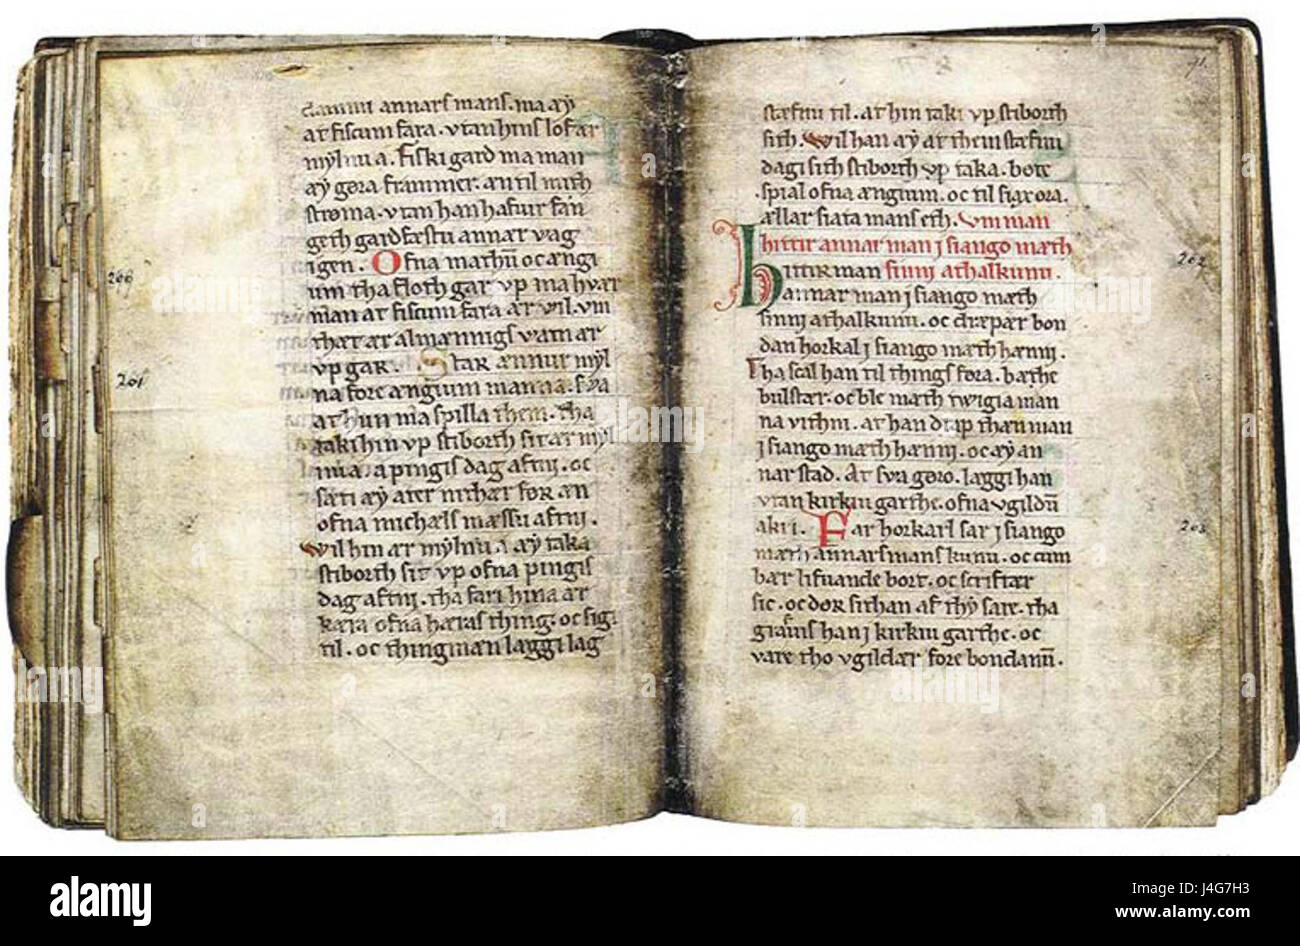 dammi annars mans. ma æy
at fiscum fara. vtan hins lof ær
mylnu a. Fiski gard ma man
æy gøra frammer. æn til mæth
strøma. vtan han hafur fan
geth gardfæstu annær vag
igen. Ofna mathū oc ængi
um tha floth gar vp ma hvær
man at fiscum fara ær vil. vm
thæt ær almænnigs vatn ær
vp gar. Star ænnur myl
na fore ængium manna. sva
at hun ma spilla them. tha
taki hin vp stiborth sit ær myl
nu a pingis dag aftni. oc
sæti æy ater nithær for æn
ofna michæls mæssu aftni.
wil hin ær mylnu a æy taka
stiborth sit vp ofna pingis
dag aftni. tha fari hin a ær
kæra ofna hæras thing. oc sigi
til. oc thingmæn læggi lag
200
201
71.
stæfnu til. at hin taki vp stiborth
sith. wil han æy at them stæfnu
dagi sith stiborth vp taka. bøte
spial ofna ængium. oc til siax ora.
ællar siata mans eth. Vm man
hittir annar man i siango mæth
Hittir man sinni athalkunu.
annar man i siango mæth
sinni athalkunu. oc dræpær bon
dan horkal i siango mæth hænni.
tha scal han til things føra. bathe
bulstær. oc ble mæth twigia man
na vithni. at han drap thæn man
i siango mæth hænni. oc æy an
nar stad. At sva gøro. læggi han
vtan kirkiu garthe. ofna vgildū
akri. Far horkarl sar i siango
mæth annars mans kunu. oc cum
bær lifuande bort. oc scriftær
sic. oc dør sithan af thy sare. tha
grafs han i kirkiu garthe. oc
vare tho vgildær fore bondanū.
202
203
alamy
alamy
Image ID: J4G7H3
www.alamy.com